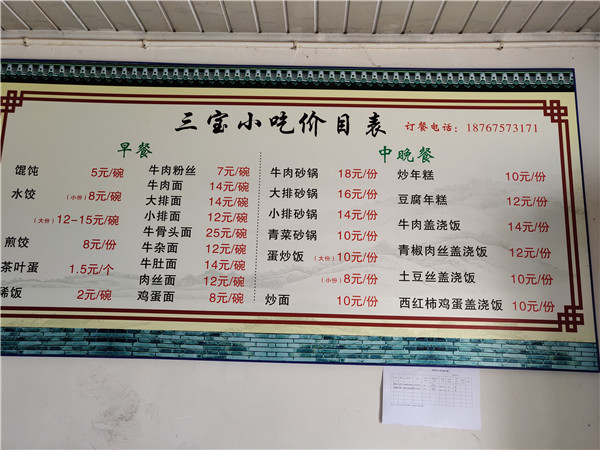 三宝小吃价目表 订餐电话：18767573171
早餐
馄饨 5元/碗
水饺 (小份)8元/碗
(大份)12-15元/碗
煎饺 8元/份
茶叶蛋 1.5元/个
稀饭 2元/碗
牛肉粉丝 7元/碗
牛肉面 14元/碗
大排面 14元/碗
小排面 12元/碗
牛骨头面 25元/碗
牛杂面 12元/碗
牛肚面 14元/碗
肉丝面 12元/碗
鸡蛋面 8元/碗
中晚餐
牛肉砂锅 18元/份
大排砂锅 16元/份
小排砂锅 14元/份
青菜砂锅 10元/份
蛋炒饭 (大份)10元/份
(小份)8元/份
炒面 10元/份
炒年糕 10元/份
豆腐年糕 12元/份
牛肉盖浇饭 14元/份
青椒肉丝盖浇饭 12元/份
土豆丝盖浇饭 10元/份
西红柿鸡蛋盖浇饭 10元/份